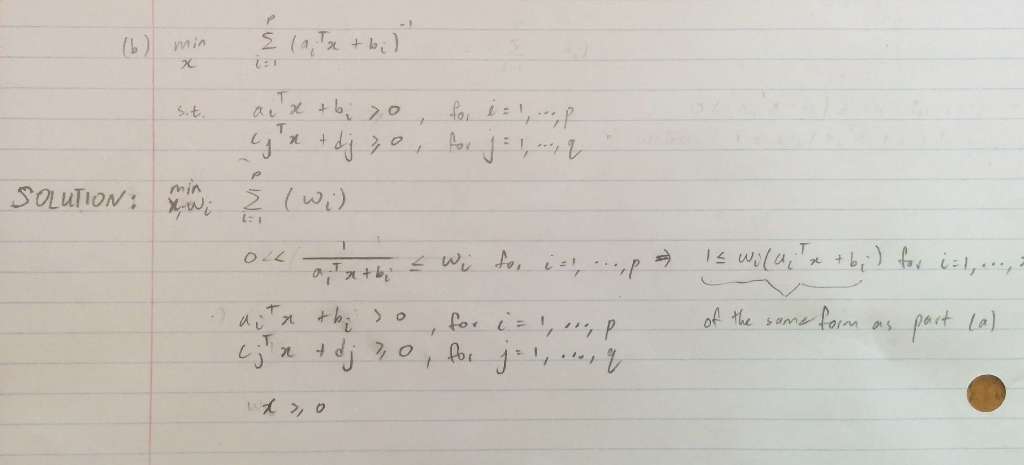 (b) min_x Σ_{i=1}^{p} (a_i^T x + b_i)^{-1}
s.t. a_i^T x + b_i > 0, for i = 1, ..., p
c_j^T x + d_j ≥ 0, for j = 1, ..., q
SOLUTION: min_{x, w_i} Σ_{i=1}^{p} (w_i)
0 << 1/(a_i^T x + b_i) ≤ w_i for i = 1, ..., p ⇒ 1 ≤ w_i(a_i^T x + b_i) for i = 1, ...,
a_i^T x + b_i > 0, for i = 1, ..., p of the same form as part (a)
c_j^T x + d_j ≥ 0, for j = 1, ..., q
x ≥ 0